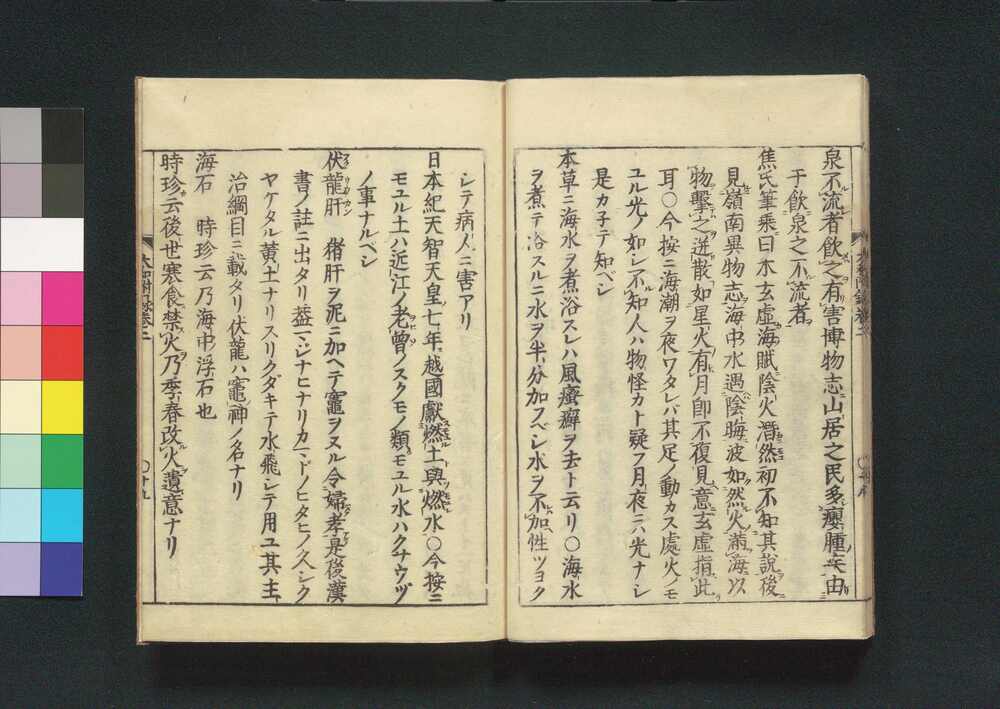 泉不流者飲之有害博物志山居之民多癭腫疾由
于飲泉之不流者
焦氏筆乗曰木玄虚海賦陰火潛然初不知其説後
見嶺南異物志海中水遇陰晦波如然火滿海以
物擊之迸散如星火有月即不復見意玄虚指此
耳〇今按ニ海潮ヲ夜ワタレバ其足ノ動カス處火ノモ
ユル光ノ如シ不知ノ人ハ物怪カト疑フ月夜ニハ光ナシ
是カ子テ知ベシ
本草ニ海水ヲ煮浴スレハ風瘙癬ヲ去ト云リ〇海水
ヲ煮テ浴スルニ水ヲ半分加フベシ水ヲ不加性ツヨク
シテ病人ニ害アリ
日本紀天智天皇七年越國獻燃土與燃水〇今按ニ
モユル土ハ近江ノ老曾ノスクモノ類モユル水ハクナウヅ
ノ事ナルベシ
伏龍肝 猪肝ヲ泥ニ加ヘテ竈ヲヌル令婦孝是後漢
書ノ註ニ出タリ葢マジナヒナリカマドノヒタヒノ久シク
ヤケタル黄土ナリスリクダキテ水飛シテ用ユ其主
治綱目ニ載タリ伏龍ハ竈神ノ名ナリ
海石 時珍云乃海中浮石也
時珍云後世寒食禁火乃季春改火遺意ナリ